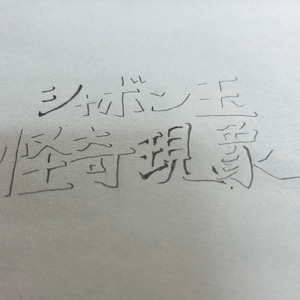 シャボン玉
怪奇現象